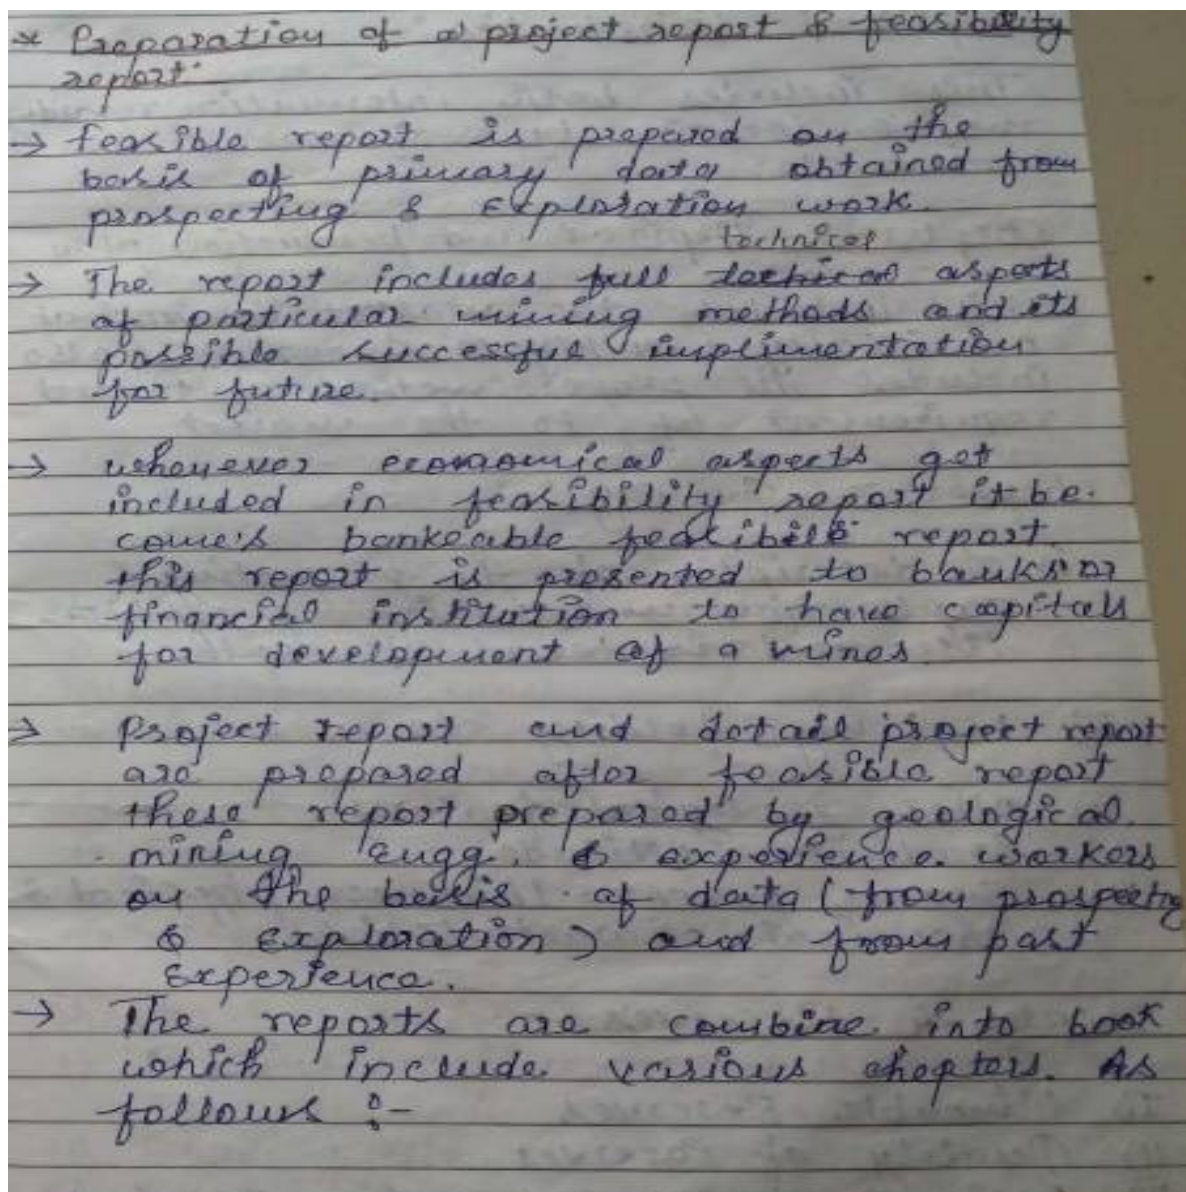 * Preparation of a project report & feasibility
report.
→ feasible report is prepared on the
basis of primary data obtained from
prospecting & Exploration work.
technical
→ The report includes full techical aspects
of particular mining methods and its
possible successful implimentation
for future.
→ whenever economical aspects get
included in feasibility report it be-
come's bankeable report.
this report is presented to banks or
financial institution to have capitals
for development of a mines
→ Project report and detail project report
are prepared after feasible report
these report prepared by geological.
mining engg. & experience. workers
on the basis of data (from prospecting
& Exploration) and from past
Experience.
→ The reports are combine into book
which include various chapters. As
follows :-